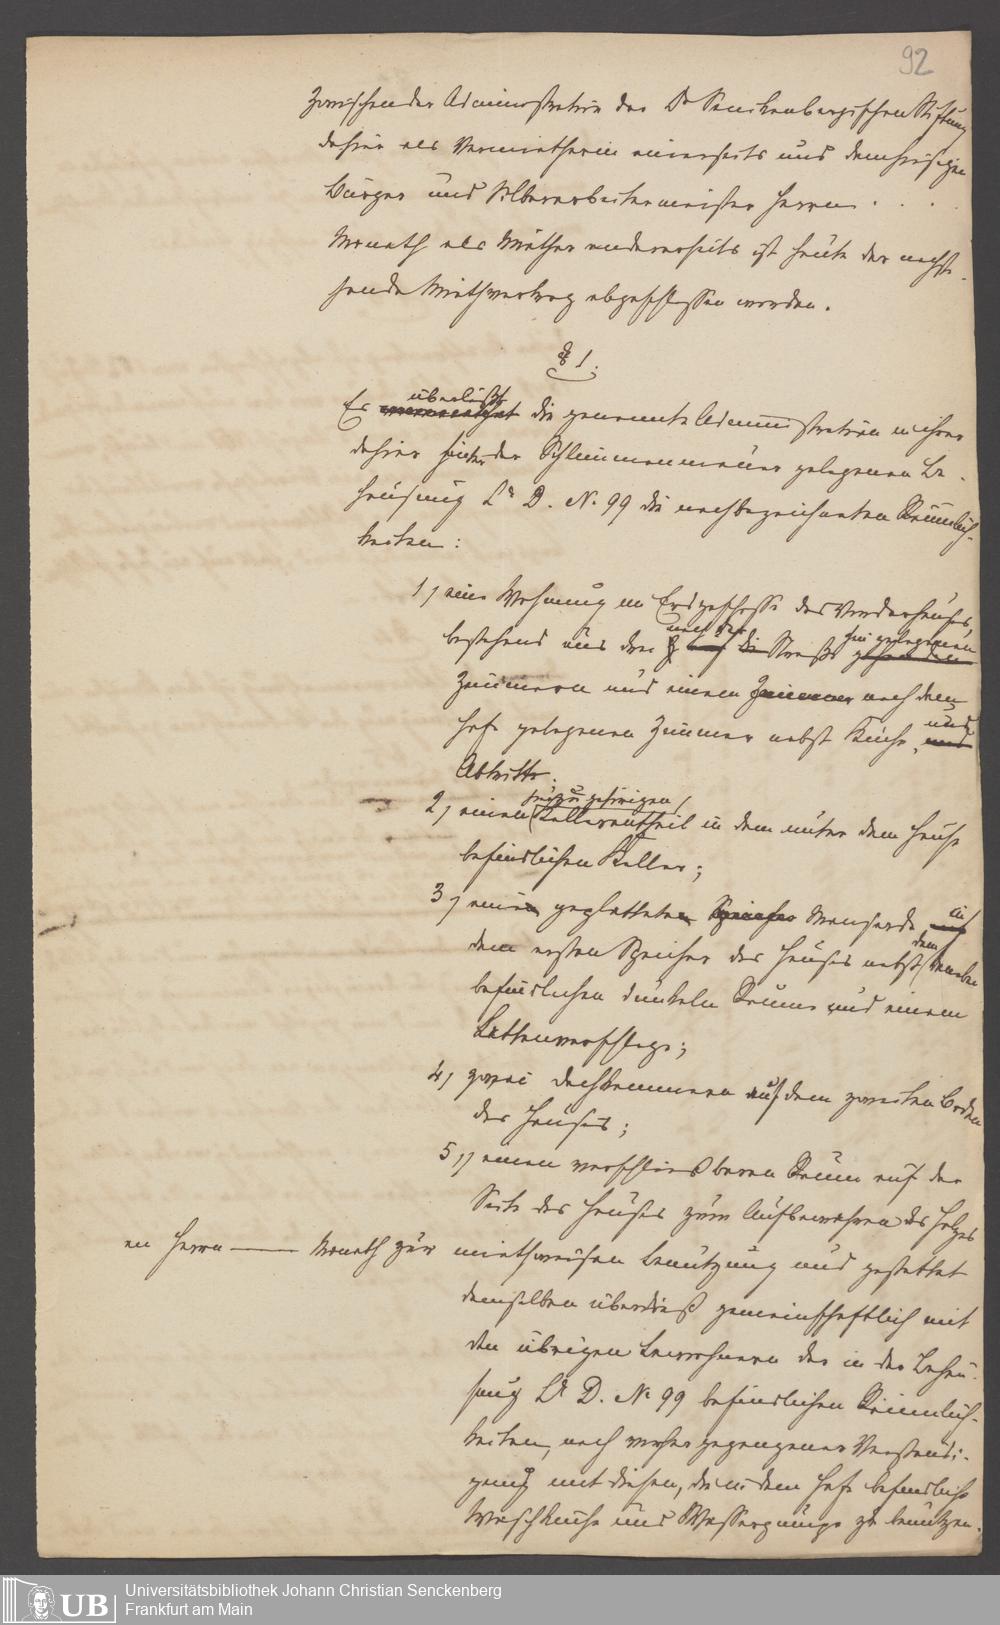 92
Zwischen der Administration der Dr Senckenbergischen Stiftung
dahier als Vermietherin einerseits und dem hiesigen
Bürger und Silberarbeitermeister Herrn . . .
Monath als Miether andererseits ist heute der nachste-
hende Miethvertrag abgeschlossen worden.
§ 1.
überläßt
Es die genannte Administration in ihrer
dahier hinter der Schlimmenmauer gelegenen Be-
hausung Lr D. No 99 die nachbezeichneten Räumlich-
keiten:
1) eine Wohnung im Erdgeschosse des Vorderhauses,
nach der hin gelegenen
bestehend aus drei auf die Straße gehenden
Zimmern und einem Zimmer nach dem
Hofe gelegenen Zimmer nebst Küche, und
und
Abtritte.
dazu gehörigen
2) einen Kellerantheil in dem unter dem Hause
befindlichen Keller;
3) eine geplattete Speicher Mansarde auf
in
dem ersten Speicher des Hauses nebst daneben
dem
befindlichen dunkeln Raume und einem
Lattenverschlage;
4) zwei Dachkammern auf dem zweiten Boden
des Hauses;
5) einen verschließbaren Raum auf der
Seite des Hauses zum Aufbewahren des Holzes
an Herrn ——— Monath zur miethweisen Benutzung und gestattet
demselben überdieß gemeinschaftlich mit
den übrigen Bewohnern der in der Behau-
sung Lr D. No 99 befindlichen Räumlich-
keiten, nach vorhergegangener Verständi-
gung mit diesen, die in dem Hofe befindliche
Waschküche und Wasserpumpe zu benutzen.
UB
Universitätsbibliothek Johann Christian Senckenberg
Frankfurt am Main